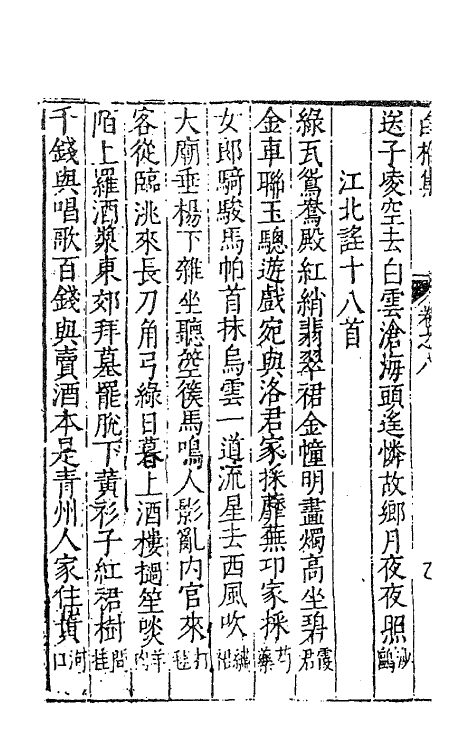 卷之八
送子凌空去白雲滄海頭遙憐故鄉月夜夜照沙鷗
江北謠十八首
綠瓦鴛鴦殿紅綃翡翠裙金幢明畫燭高坐碧霞君
金車聯玉驄遊戲宛與洛君家採蘼蕪卭家採芍藥
女郎騎駿馬帕首抹烏雲一道流星去西風吹繡裙
大廟垂楊下雜坐聽箜篌馬鳴人影亂內官來打毬
客從臨洮來長刀角弓綠日暮上酒樓撾笙啖羊肉
陌上羅酒漿東郊拜墓罷脫下黃衫子紅裙樹間挂
千錢與唱歌百錢與賣酒本是青州人家住黃河口